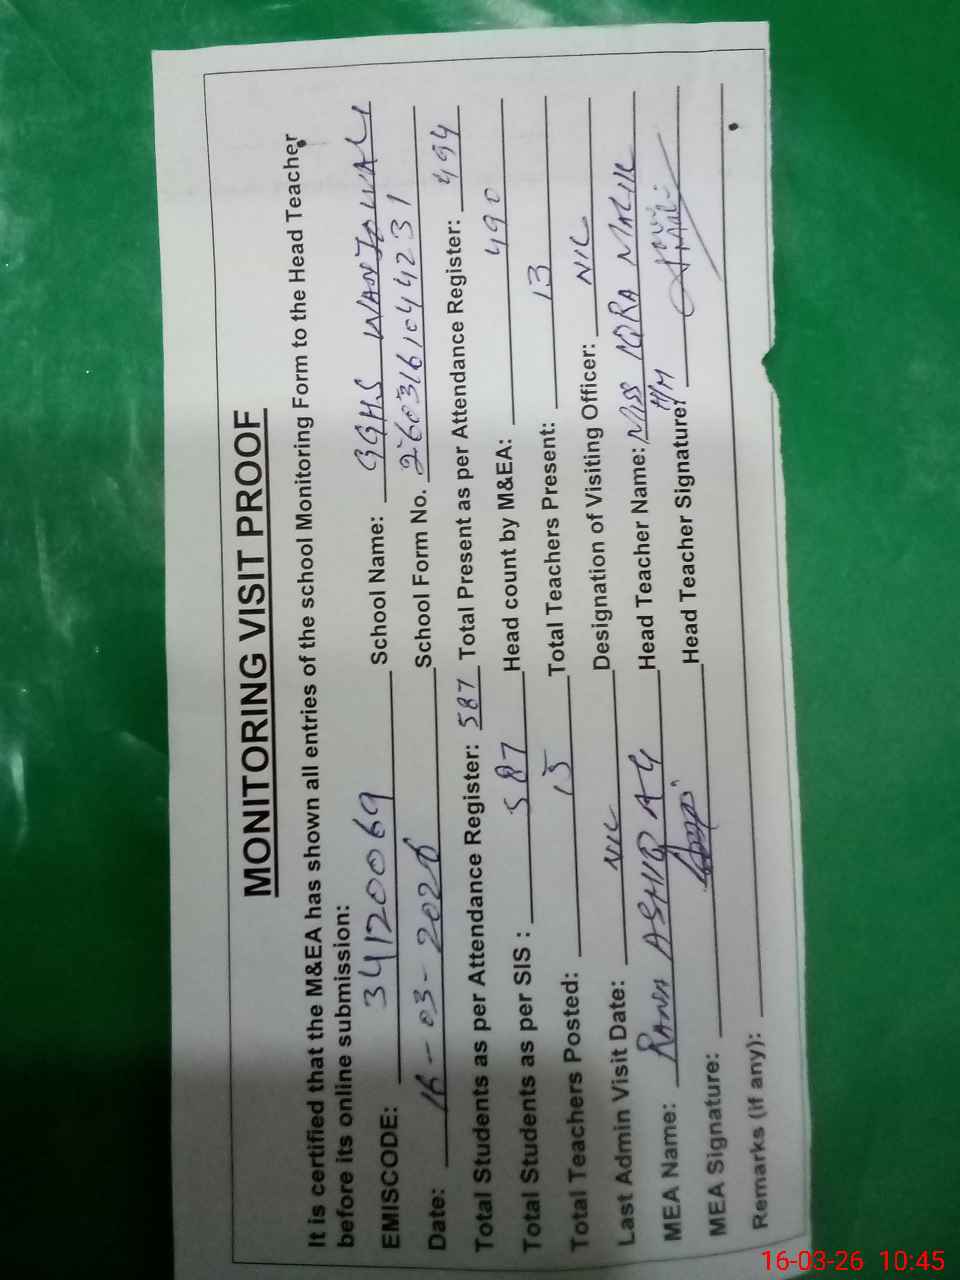 MONITORING VISIT PROOF
It is certified that the M&EA has shown all entries of the school Monitoring Form to the Head Teacher
before its online submission:
EMISCODE: 34120069 School Name: GGHS WANJOWALI
Date: 16-03-2026 School Form No. 26031610442231
Total Students as per Attendance Register: 587 Total Present as per Attendance Register: 494
Total Students as per SIS : 587 Head count by M&EA: 490
Total Teachers Posted: 15 Total Teachers Present: 13
Last Admin Visit Date: NIL Designation of Visiting Officer: NIL
MEA Name: RANA ASHFAQ Head Teacher Name: MISS IQRA MALIK
MEA Signature: Head Teacher Signature: H/M
Remarks (if any):
16-03-26 10:45